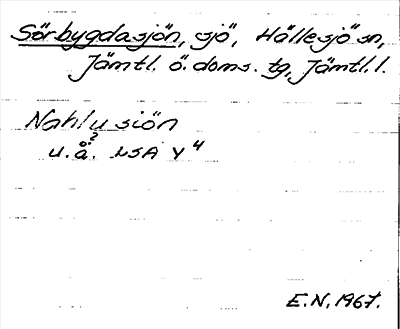 Sörbygdasjön, sjö, Hällesjö sn,
Jämtl. ö. doms. tg, Jämtl. l.
Nahlu siön
?
u.å. LSA Y4
E.N. 1967.